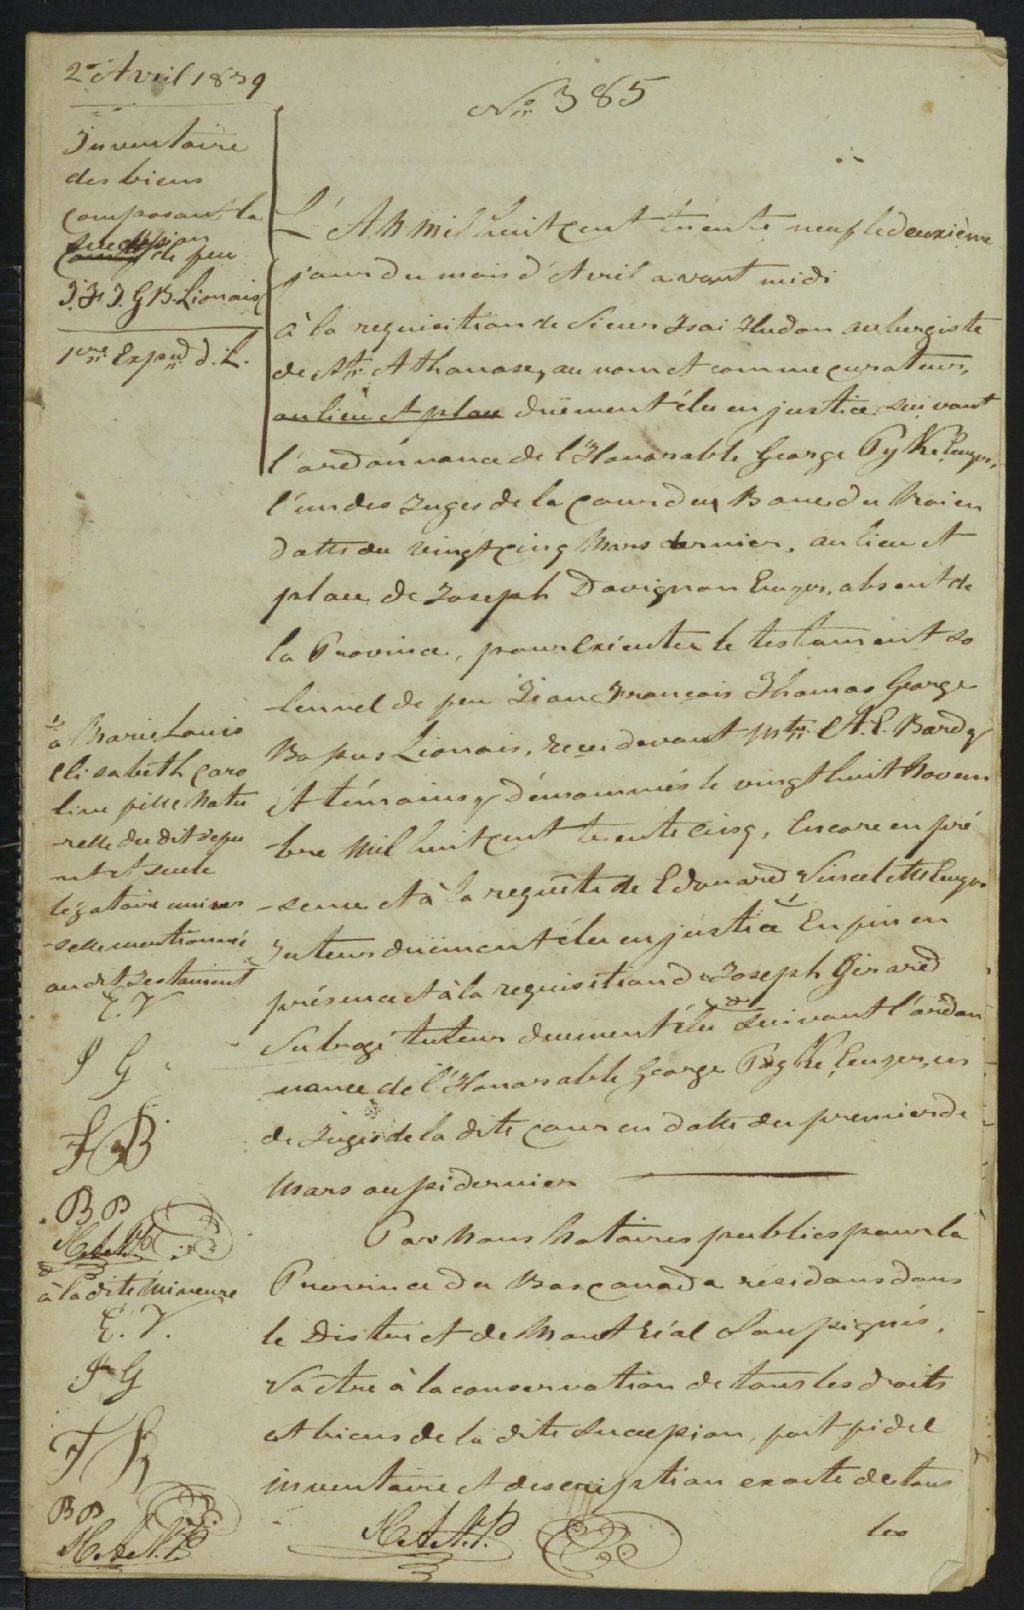 2 Avril 1839
No 385
Inventaire
des biens
composant la
succession
de feu
J. F. T. G B. Lionais
1ère Expéd d. L.
L'An mil huit cent trente neuf le deuxième
jour du mois d'Avril avant midi
à la requisition de Sieur Isai Hudon aubergiste
de St Athanase, au nom et comme curateur,
au lieu et place duëment élu en justice suivant
l'ordonnance de l'Honorable George Pyke Ecuyer,
l'un des Juges de la Cour du Banc du Roi en
datte du vingt cinq Mars dernier, au lieu et
place de Joseph Davignon Ecuyer, absent de
la Province, pour exécuter le testament so
lennel de feu Jean François Thomas George
Bapus Lionais, reçu devant Mtre A. E. Bardy
et témoins y dénommés le vingt huit Novem
bre Mil huit cent trente cinq, Encore en pré
sence et à la requête de Edouard Vincelette Ecuyer
Tuteur duëment élu en justice Enfin en
présence et à la requisition de Joseph Girard
Subrogé tuteur duement élu suivant l'ordon
nance de l'Honorable George Pyke, Ecuyer, un
de Juges de la dite Cour en datte du premier de
Mars aussi dernier
Par Nous Notaires publics pour la
Province du Bas Canada résidans dans
le District de Montréal Soussignés,
Va être à la conservation de tous les droits
et biens de la dite Succession, fait fidel
inventaire et description exacte de tous
les
à Marie Louis
Elisabeth Caro
line fille Natu
relle du dit défu
nt et seule
légataire univer
selle mentionnée
au dit Testament
E. V
J G
J B
B P
à la dite Mineure
E. V.
J G
B P